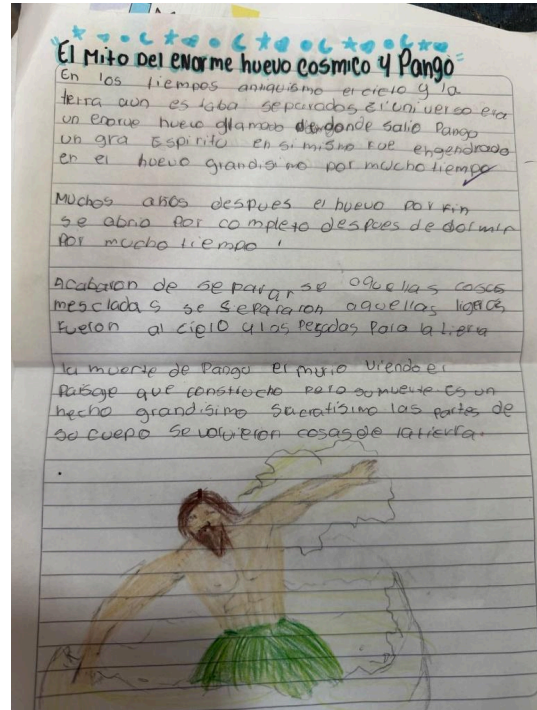 El Mito Del enorme huevo cosmico y Pango
En los tiempos antiquísmo el cielo y la
terra aun estaba separados el universo era
un enorve huevo glamado dondonde salio Pango
un gra Espiritu en si mismo fue engendrado
en el huevo grandisimo por mucho tiempo
Muchos años despues el huevo por fin
se abrio por completo despues de dormir
por mucho tiempo
Acabaron de separarse aquellas cosas
mescladas se separaron aquellas ligeras
fueron al cielo y las pesadas para la tierra
la muerte de Pangu el murio viendo el
paisaje que construcho pero su muerte es un
hecho grandisimo sacratisimo las partes de
su cuepo se volvieron cosas de la tierra.